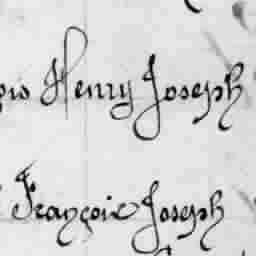 Henry Joseph
François Joseph